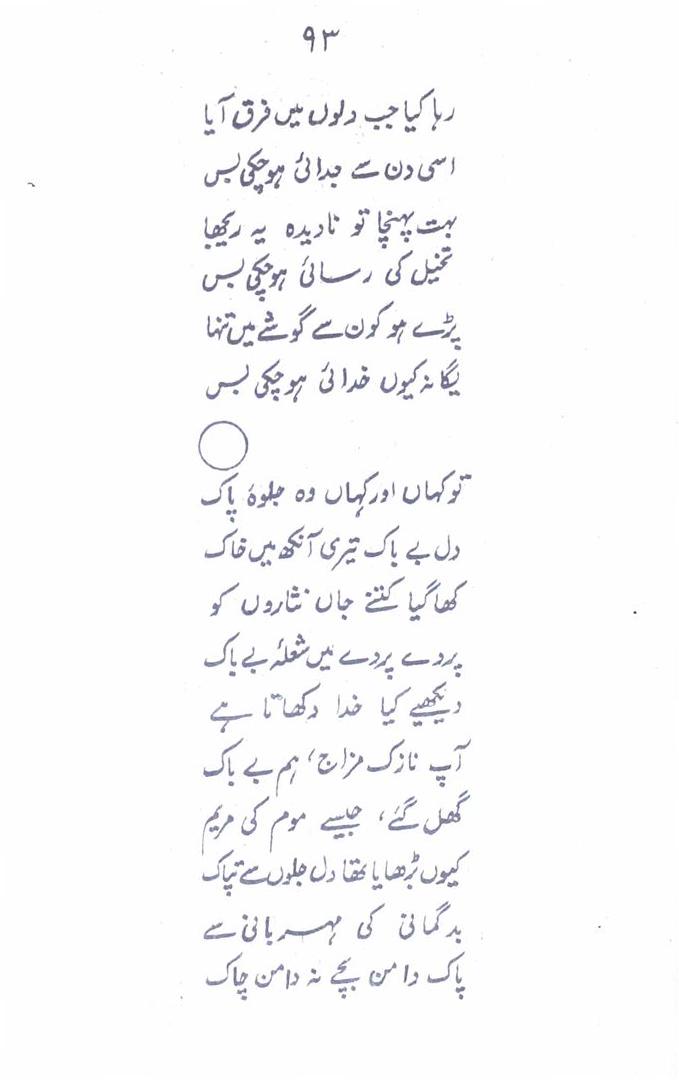 ۹۳
رہا کیا جب دلوں میں فرق آیا
اسی دن سے جدائی ہوچکی بس
بہت پہنچا تو نادیدہ یہ ریجھا
تخیل کی رسائی ہوچکی بس
پڑے ہو کون سے گوشے میں تنہا
یگانہ کیوں خدائی ہوچکی بس
تو کہاں اور کہاں وہ جلوۂ پاک
دل بے باک تیری آنکھ میں خاک
کھا گیا کتنے جاں نثاروں کو
پردے پردے میں شعلۂ بے باک
دیکھیے کیا خدا دکھاتا ہے
آپ نازک مزاج، ہم بے باک
گھل گئے، جیسے موم کی مریم
کیوں بڑھایا تھا دل جلوں سے تپاک
بدگمانی کی مہربانی سے
پاک دامن بچے نہ دامن چاک